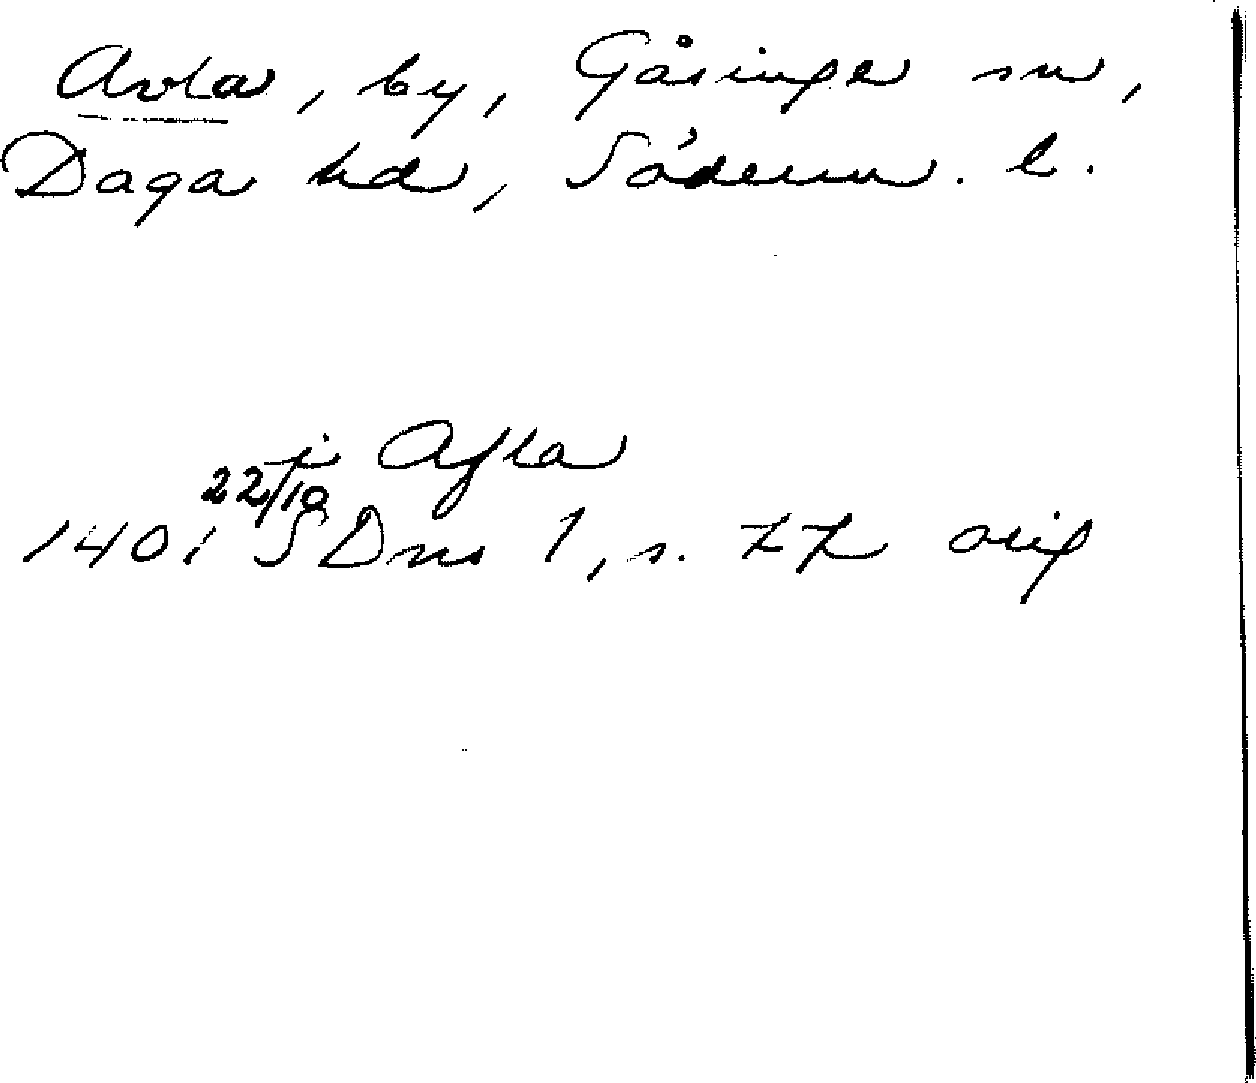 Avla, by, Gåsinge sn,
Daga hd, Söderm. l.
i Afla
22/10
1401 SDns 1, s. 77 orig